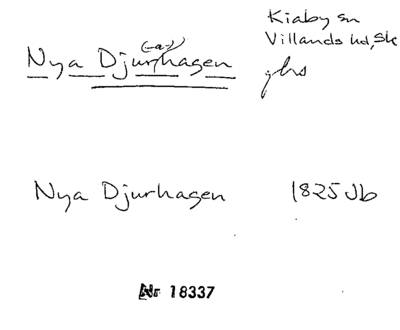 Kiaby sn
Villands hd, Sk
(-a-)
Nya Djurhagen
ghs
Nya Djurhagen 1825 Jb
Nr 18337